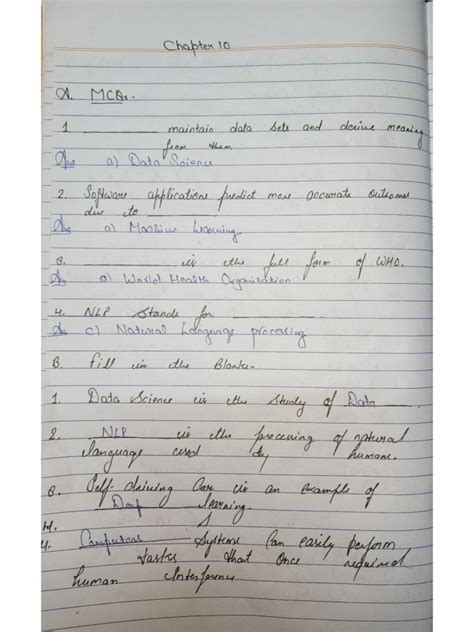 Chapter 10
A. MCQs -
1. ________ maintain data sets and derive meaning
from them
Ans a) Data Science
2. Software applications predict more accurate outcomes
due to ________
Ans a) Machine Learning
3. ________ is the full form of WHO.
Ans a) World Health Organisation
4. NLP stands for ________
Ans c) Natural Language processing
B. Fill in the Blanks-
1. Data Science is the study of Data.
2. NLP is the processing of natural
language used by humans.
3. Self-driving Car is an example of
Deep learning.
4. Computers Systems Can easily perform
tasks that once required
human Interference